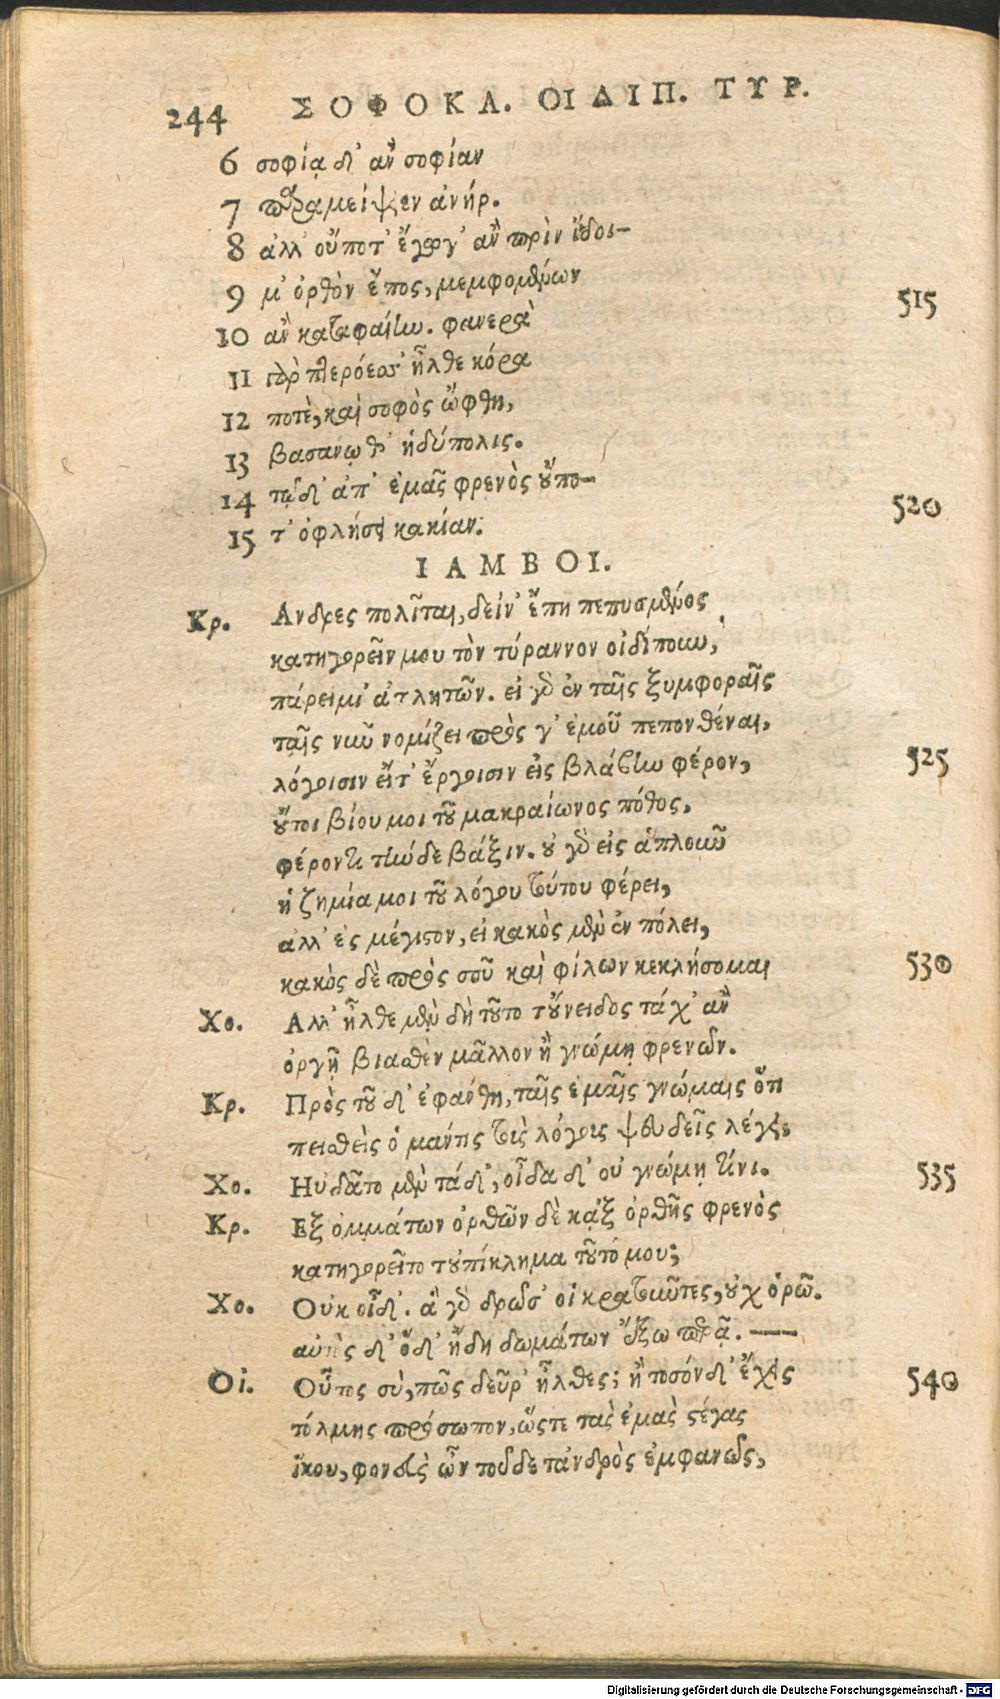 244 ΣΟΦΟΚΛ. ΟΙΔΙΠ. ΤΥΡ.
6 σοφίᾳ δ' ἂν σοφίαν
7 παραμείψειεν ἀνήρ.
8 ἀλλ' οὔποτ' ἔγωγ' ἂν πρὶν ἴδοι-
9 μ' ὀρθὸν ἔπος, μεμφομένων 515
10 ἂν καταφαίην. φανερὰ
11 γὰρ πτερόεσσ' ἦλθε κόρα
12 ποτὲ, καὶ σοφὸς ὤφθη,
13 βασάνῳ θ' ἡδύπολις.
14 τῷδ' ἀπ' ἐμᾶς φρενὸς οὔπο- 520
15 τ' ὀφλήσει κακίαν.
ΙΑΜΒΟΙ.
Κρ. Ανδρες πολῖται, δείν' ἔπη πεπυσμένος
κατηγορεῖν μου τὸν τύραννον οἰδίπουν,
πάρειμι' ἀτλητῶν. εἰ γὸ ἐν ταῖς ξυμφοραῖς
ταῖς νῦν νομίζει πρὸς γ' ἐμοῦ πεπονθέναι,
λόγοισιν εἴτ' ἔργοισιν εἰς βλάβην φέρον, 525
οὔτοι βίου μοι τοῦ μακραίωνος πόθος,
φέροντι τήνδε βάξιν. οὐ γὸ εἰς ἁπλοῦν
ἡ ζημία μοι τοῦ λόγου τούτου φέρει,
ἀλλ' ἐς μέγιστον, εἰ κακὸς μὲν ἐν πόλει,
κακὸς δὲ πρὸς σοῦ καὶ φίλων κεκλήσομαι 530
Χο. Αλλ' ἦλθε μὲν δὴ τοῦτο τοὔνειδος τάχ' ἂν
ὀργῇ βιασθὲν μᾶλλον ἢ γνώμῃ φρενῶν.
Κρ. Πρὸς τοῦ δ' ἐφάνθη, ταῖς ἐμαῖς γνώμαις ὅτι
πεισθεὶς ὁ μάντις τοὺς λόγους ψευδεῖς λέγει;
Χο. Ηὐδᾶτο μὲν τάδ', οἶδα δ' οὐ γνώμῃ τίνι. 535
Κρ. Εξ ὀμμάτων ὀρθῶν δὲ κᾀξ ὀρθῆς φρενὸς
κατηγορεῖτο τοὐπίκλημα τοῦτό μου;
Χο. Οὐκ οἶδ'. ἃ γὸ δρῶσ' οἱ κρατοῦντες, οὐχ ὁρῶ.
αὐτὸς δ' ὅδ' ἤδη δωμάτων ἔξω περᾷ. ——
Οἰ. Οὗτος σὺ, πῶς δεῦρ' ἦλθες; ἦ τοσόνδ' ἔχεις 540
τόλμης πρόσωπον, ὥστε τὰς ἐμὰς στέγας
ἵκου, φονεὺς ὢν τοῦδε τἀνδρὸς ἐμφανῶς,
Digitalisierung gefördert durch die Deutsche Forschungsgemeinschaft - DFG